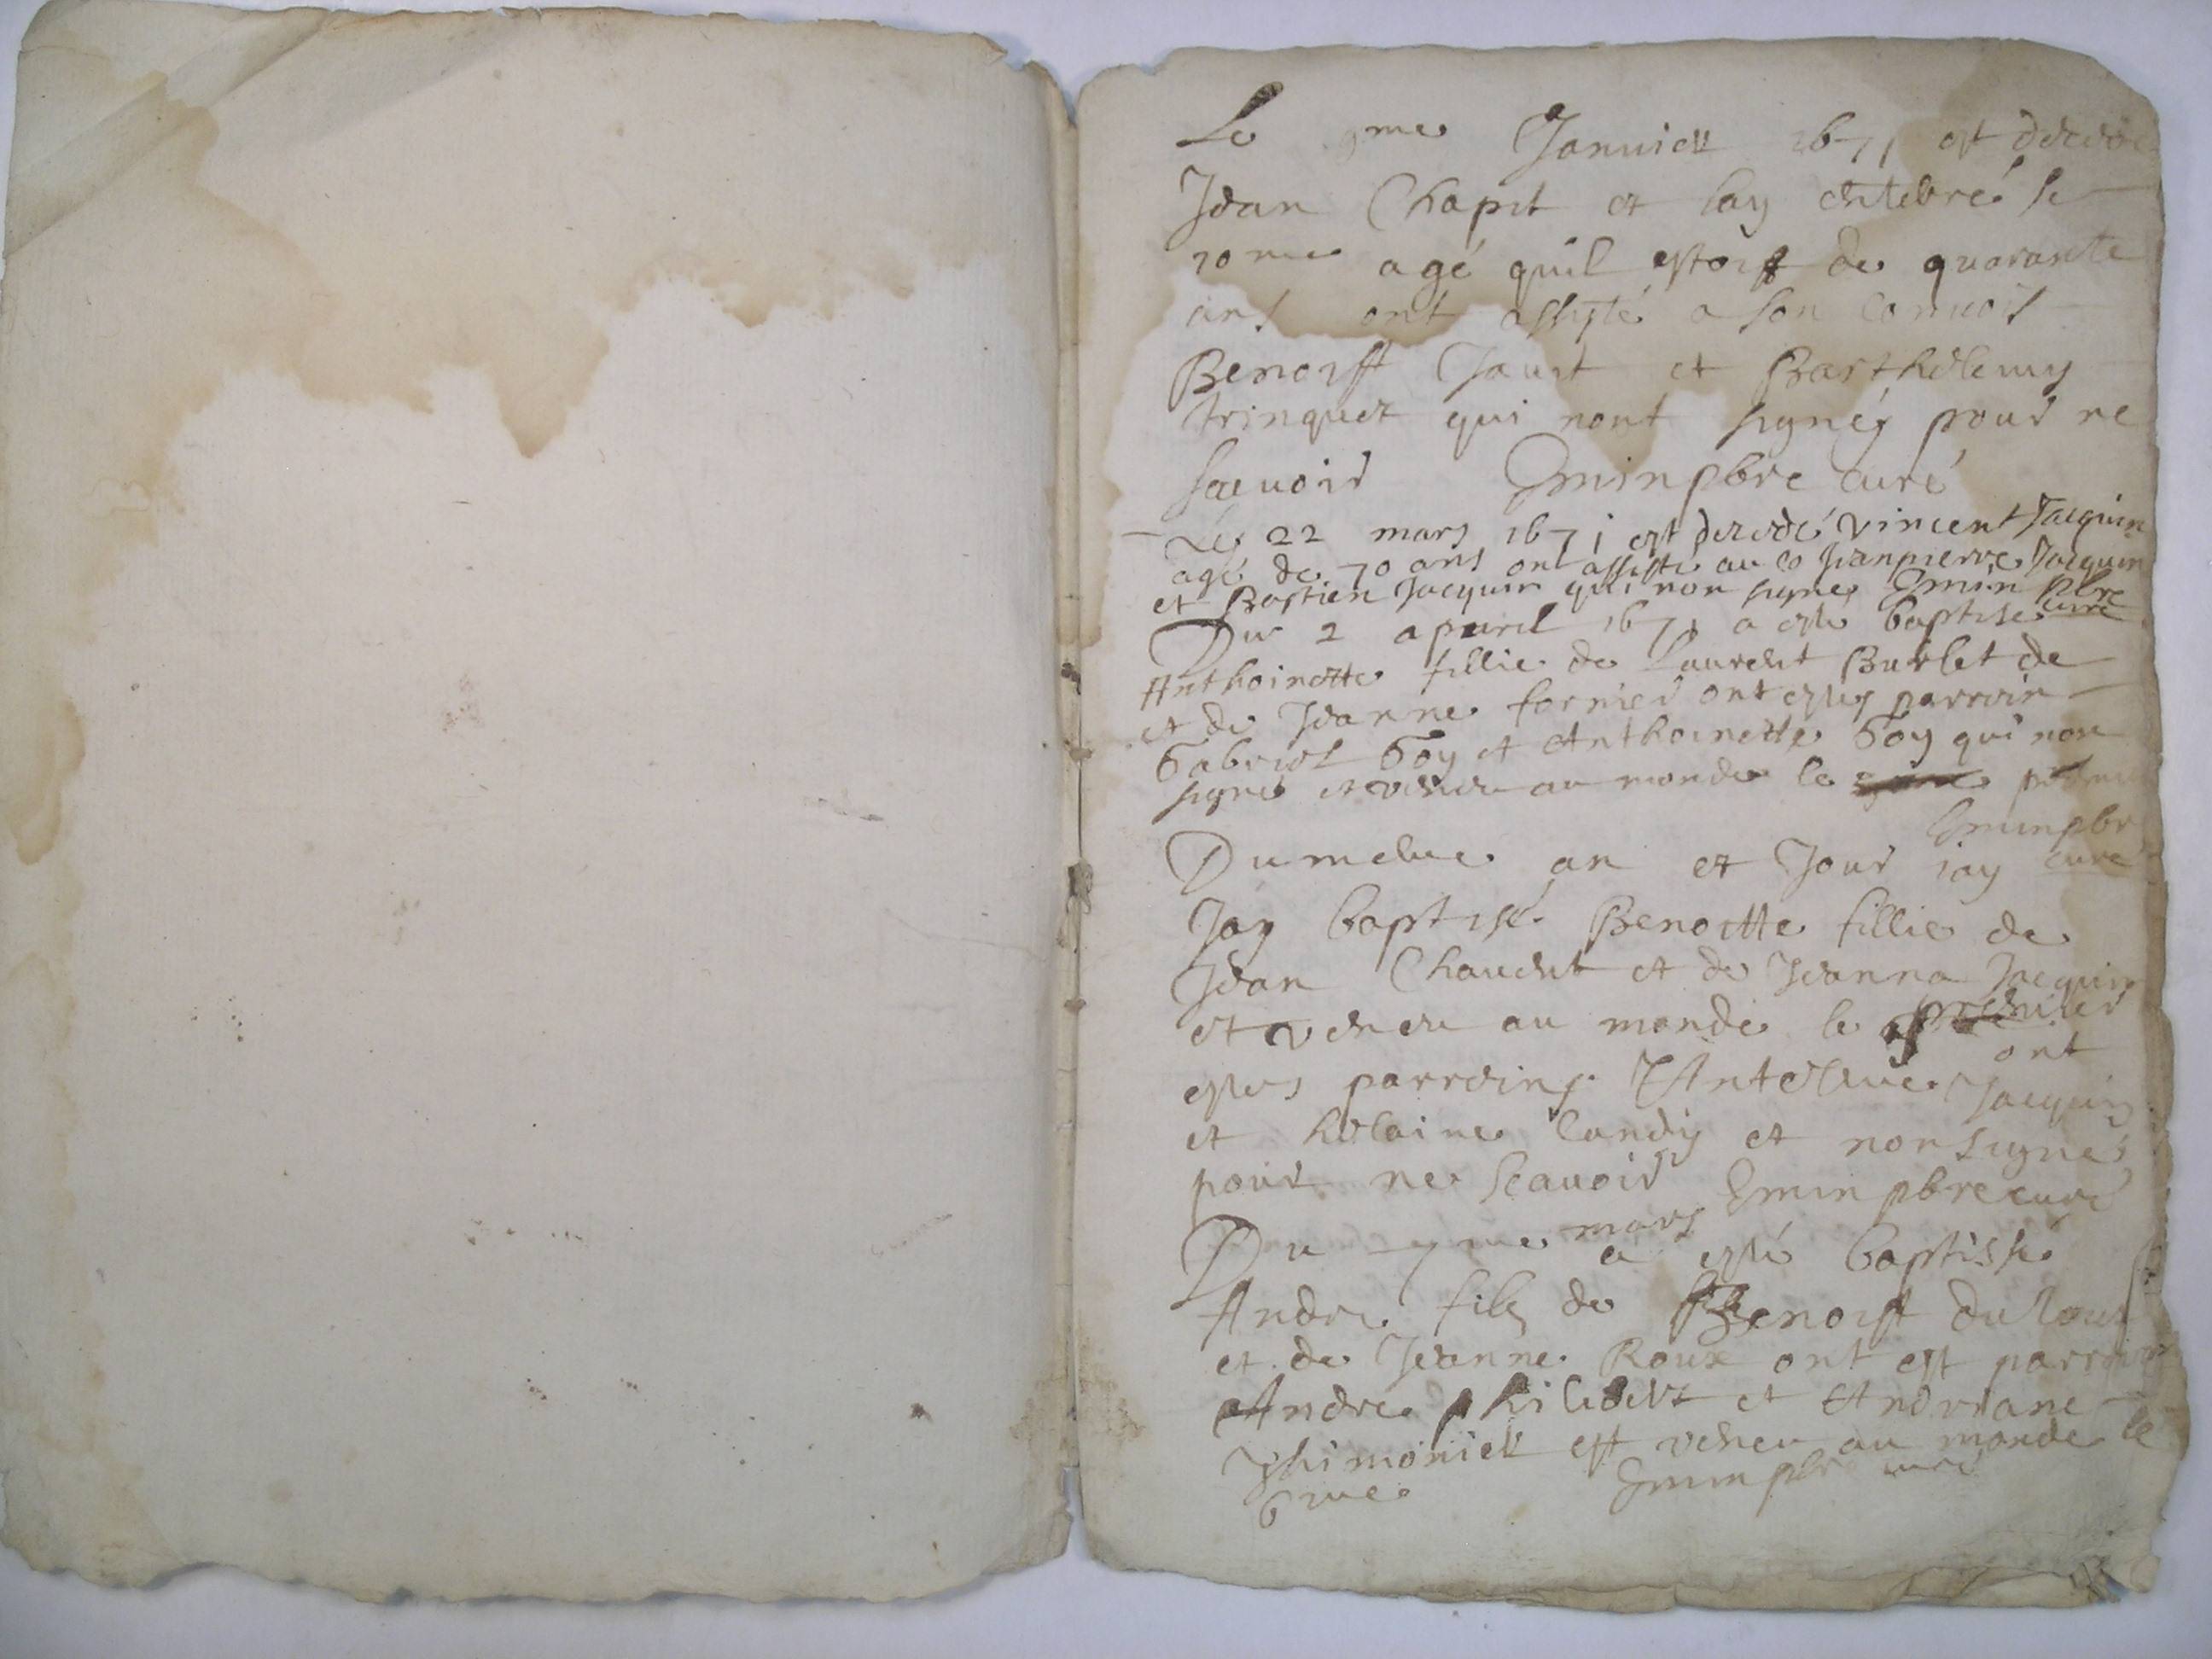 Le 9me Januier 1671 est decede
Jean Chapit et lay enterré le
10me agé quil estoist de quarante
ans ont assisté a son conuoit
Benoist Jauit et Barthelemy
trinquet qui nont signés pour ne
scauoir Emin pbre curé
Les 22 mars 1671 est decedé vincent Jacquin
agé de 70 ans ont assisté au co Jeanpierre Jacquin
et Bastien Jacquin qui non signe Emin pbre
curé
Du 2 apuril 1671 a este baptise
Anthoinette fillie de Laurent Burlet de
et de Jeanne fornier ont estes parroin
Gabriel Goy et Anthoinette Goy qui non
signe et veneu au monde le premie
Emin pbr
curé
Du mesme an et Jour iay
Jay baptisé Benoitte fillie de
Jean Chauent et de Jeanna Jacquin
et veneu au monde le premier
ont
estes parroins Antelme Jacquin
et helaine landy et non signes
pour ne scauoir Emin pbre curé
Du 7me mars a esté baptisse
Andre fils de Benoist du
et de Jeanne Roux ont est parroins
Andre philibert et Andriane
thimonier est veneu au monde le
6me Emin pbr curé